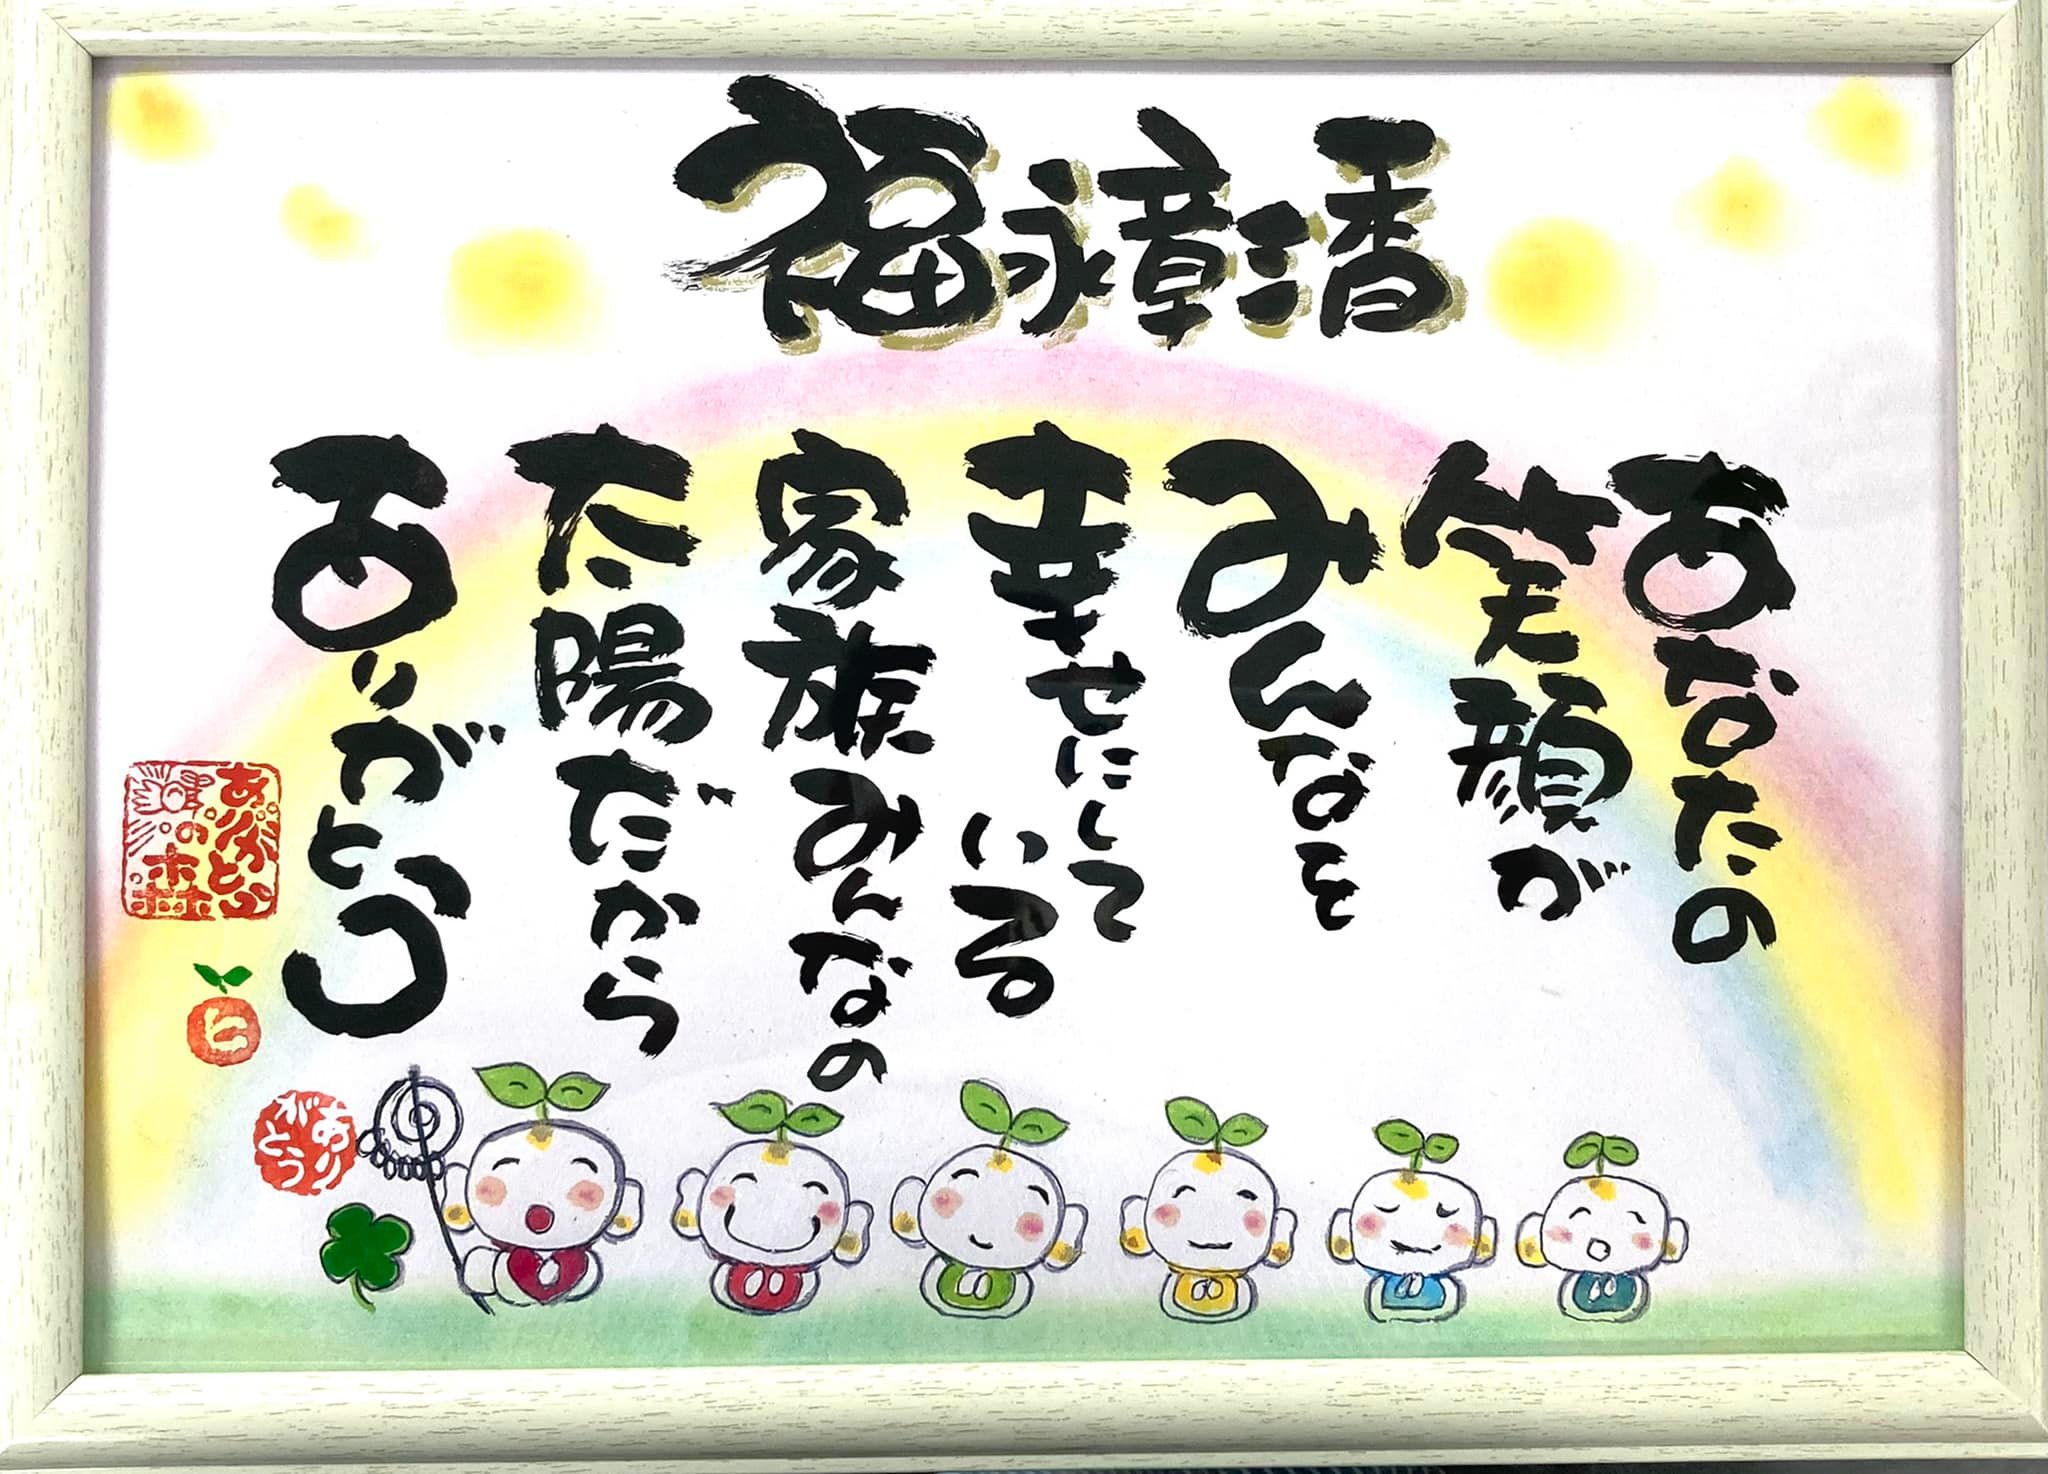 福永章江香
あなたの
笑顔が
みんなを
幸せにして
いる
家族みんなの
太陽だから
ありがとう
ありがとう
の森
ヒ
あり
がとう